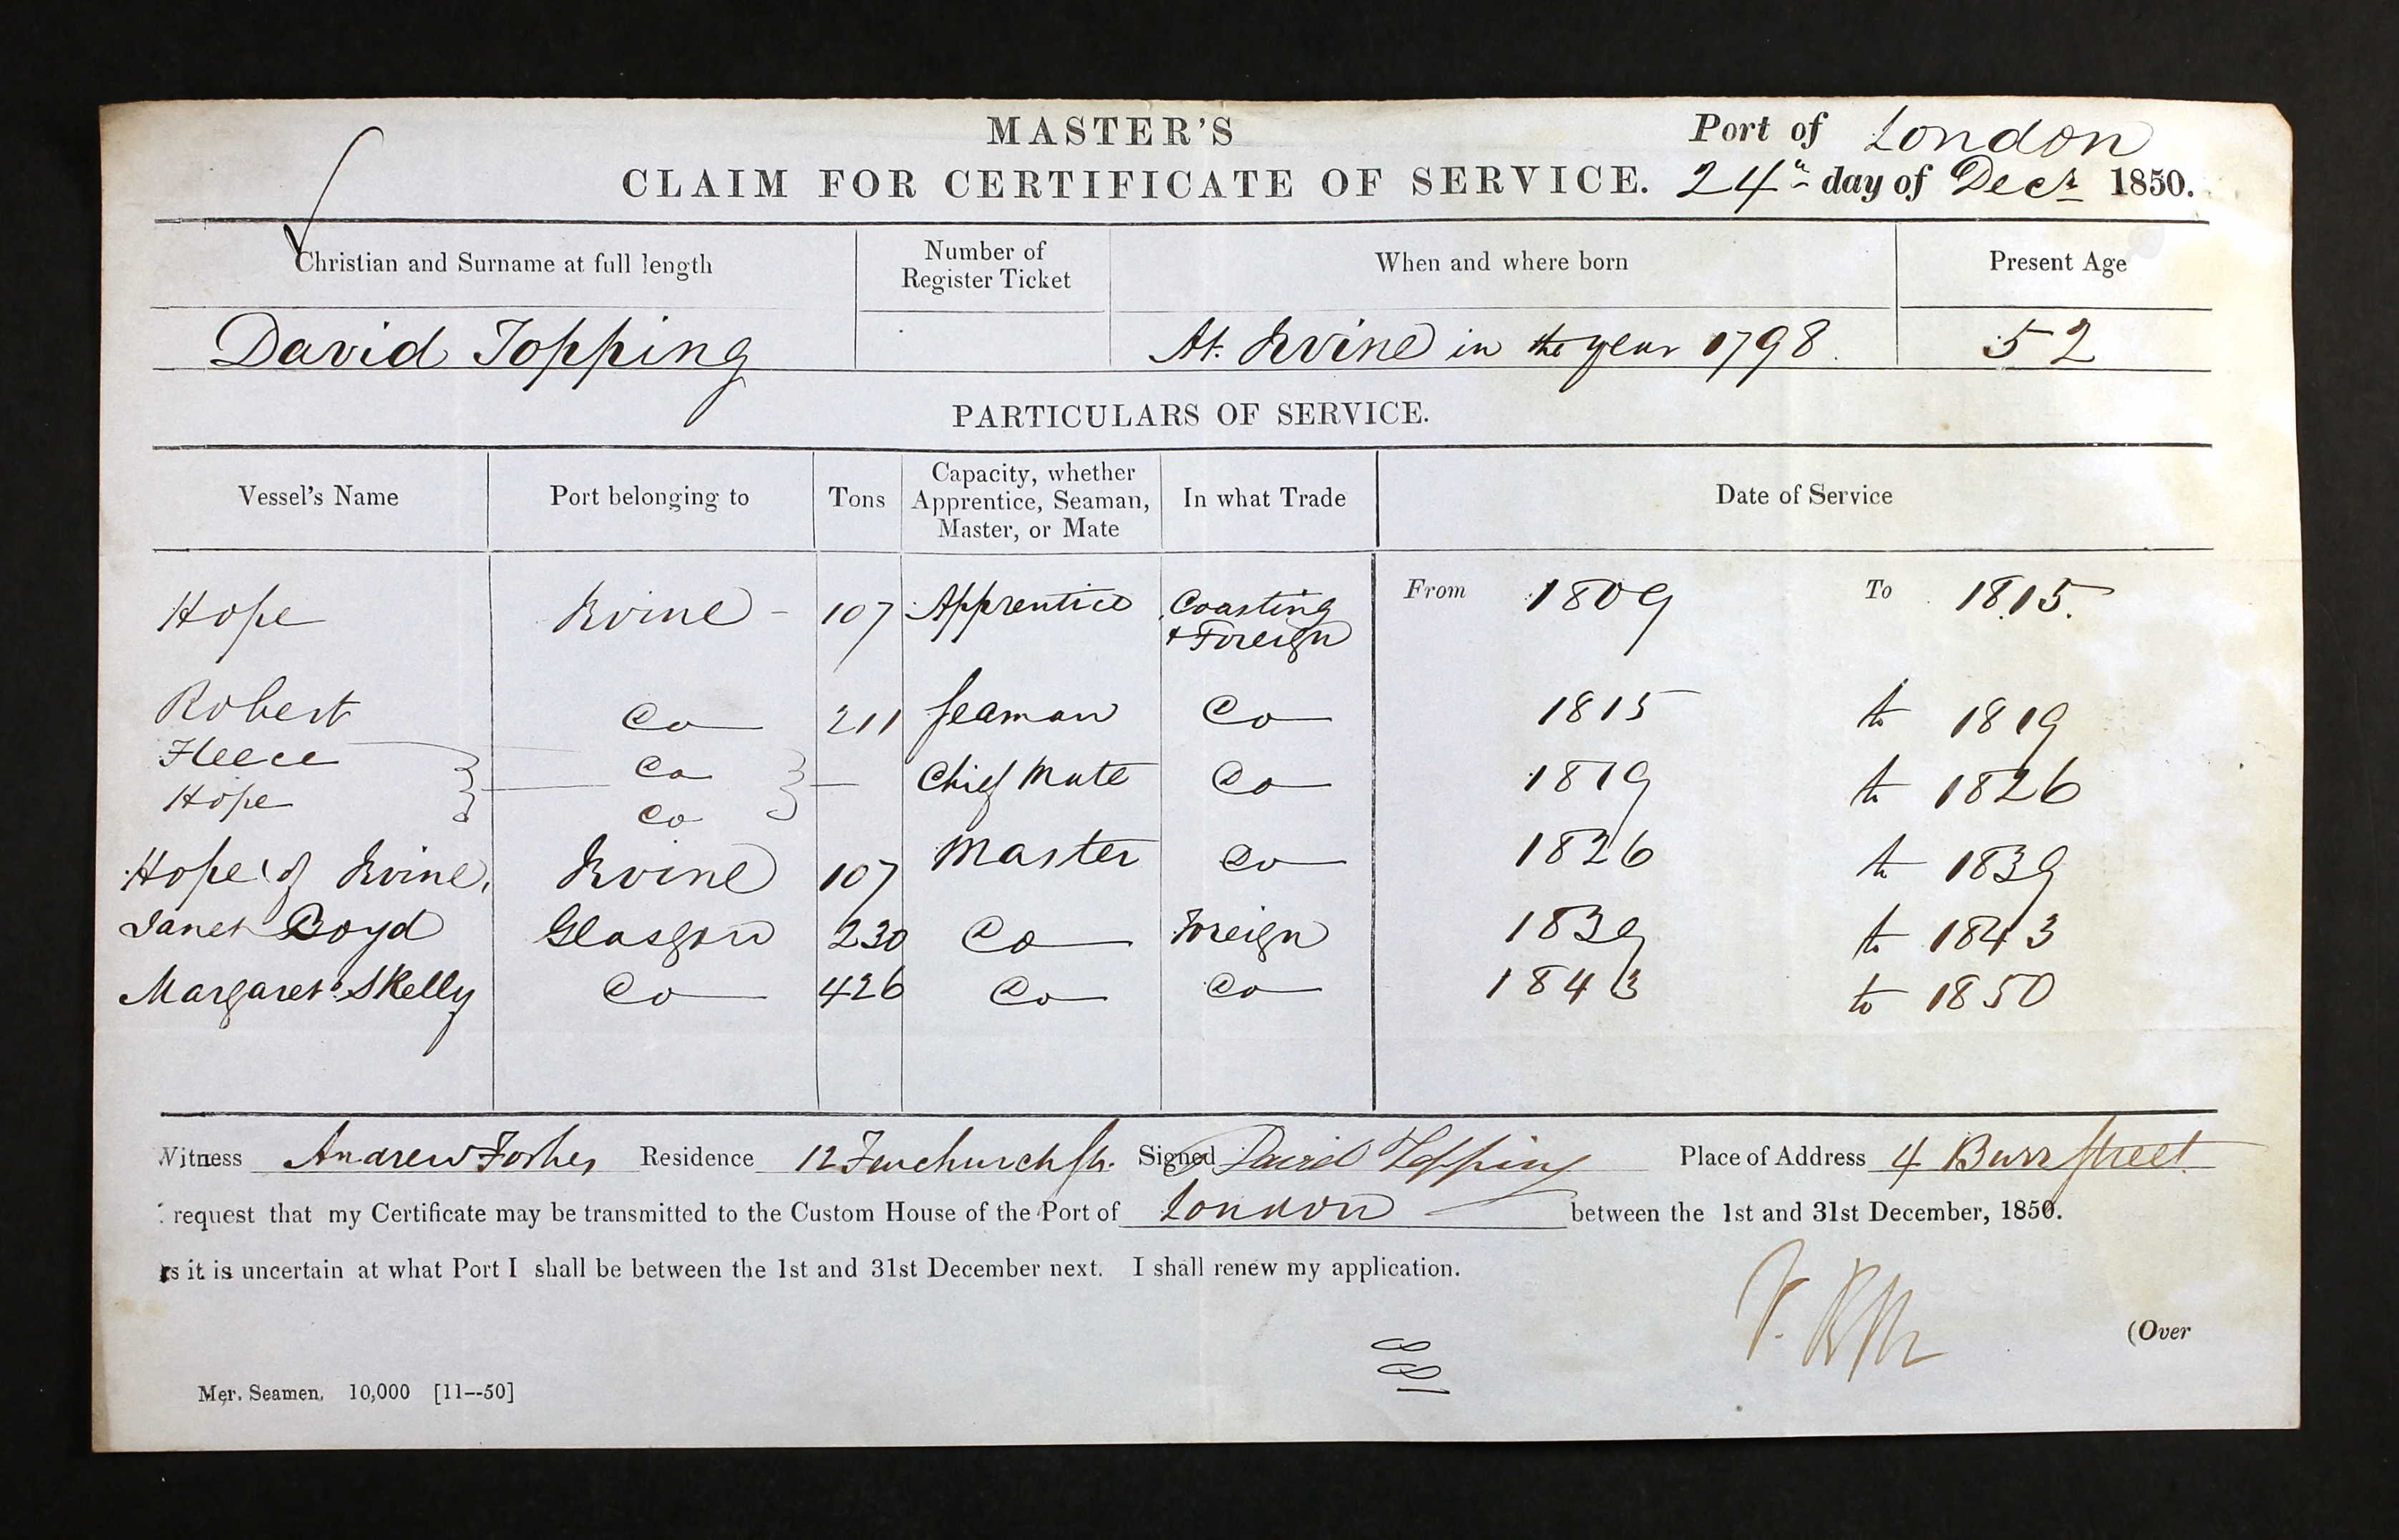 MASTER'S
Port of London
CLAIM FOR CERTIFICATE OF SERVICE. 24th day of Decr 1850.
Christian and Surname at full length Number of Register Ticket When and where born Present Age
David Topping At Irvine in the year 1798. 52
PARTICULARS OF SERVICE.
Vessel's Name Port belonging to Tons Capacity, whether Apprentice, Seaman, Master, or Mate In what Trade Date of Service
Hope Irvine - 107 Apprentice Coasting & Foreign From 1809 To 1815.
Robert Do 211 Seaman Do 1815 to 1819
Fleece Do
Chief Mate Do 1819 to 1826
Hope Do
Hope of Irvine. Irvine 107 Master Do 1826 to 1839
Janet Boyd Glasgow 230 Do Foreign 1839 to 1843
Margaret Skelly Do 426 Do Do 1843 to 1850
Witness Andrew Forbes Residence 12 Fenchurch St. Signed David Topping Place of Address 4 Burr Street
I request that my Certificate may be transmitted to the Custom House of the Port of London between the 1st and 31st December, 1850.
As it is uncertain at what Port I shall be between the 1st and 31st December next. I shall renew my application.
(Over
Mer. Seamen, 10,000 [11--50]